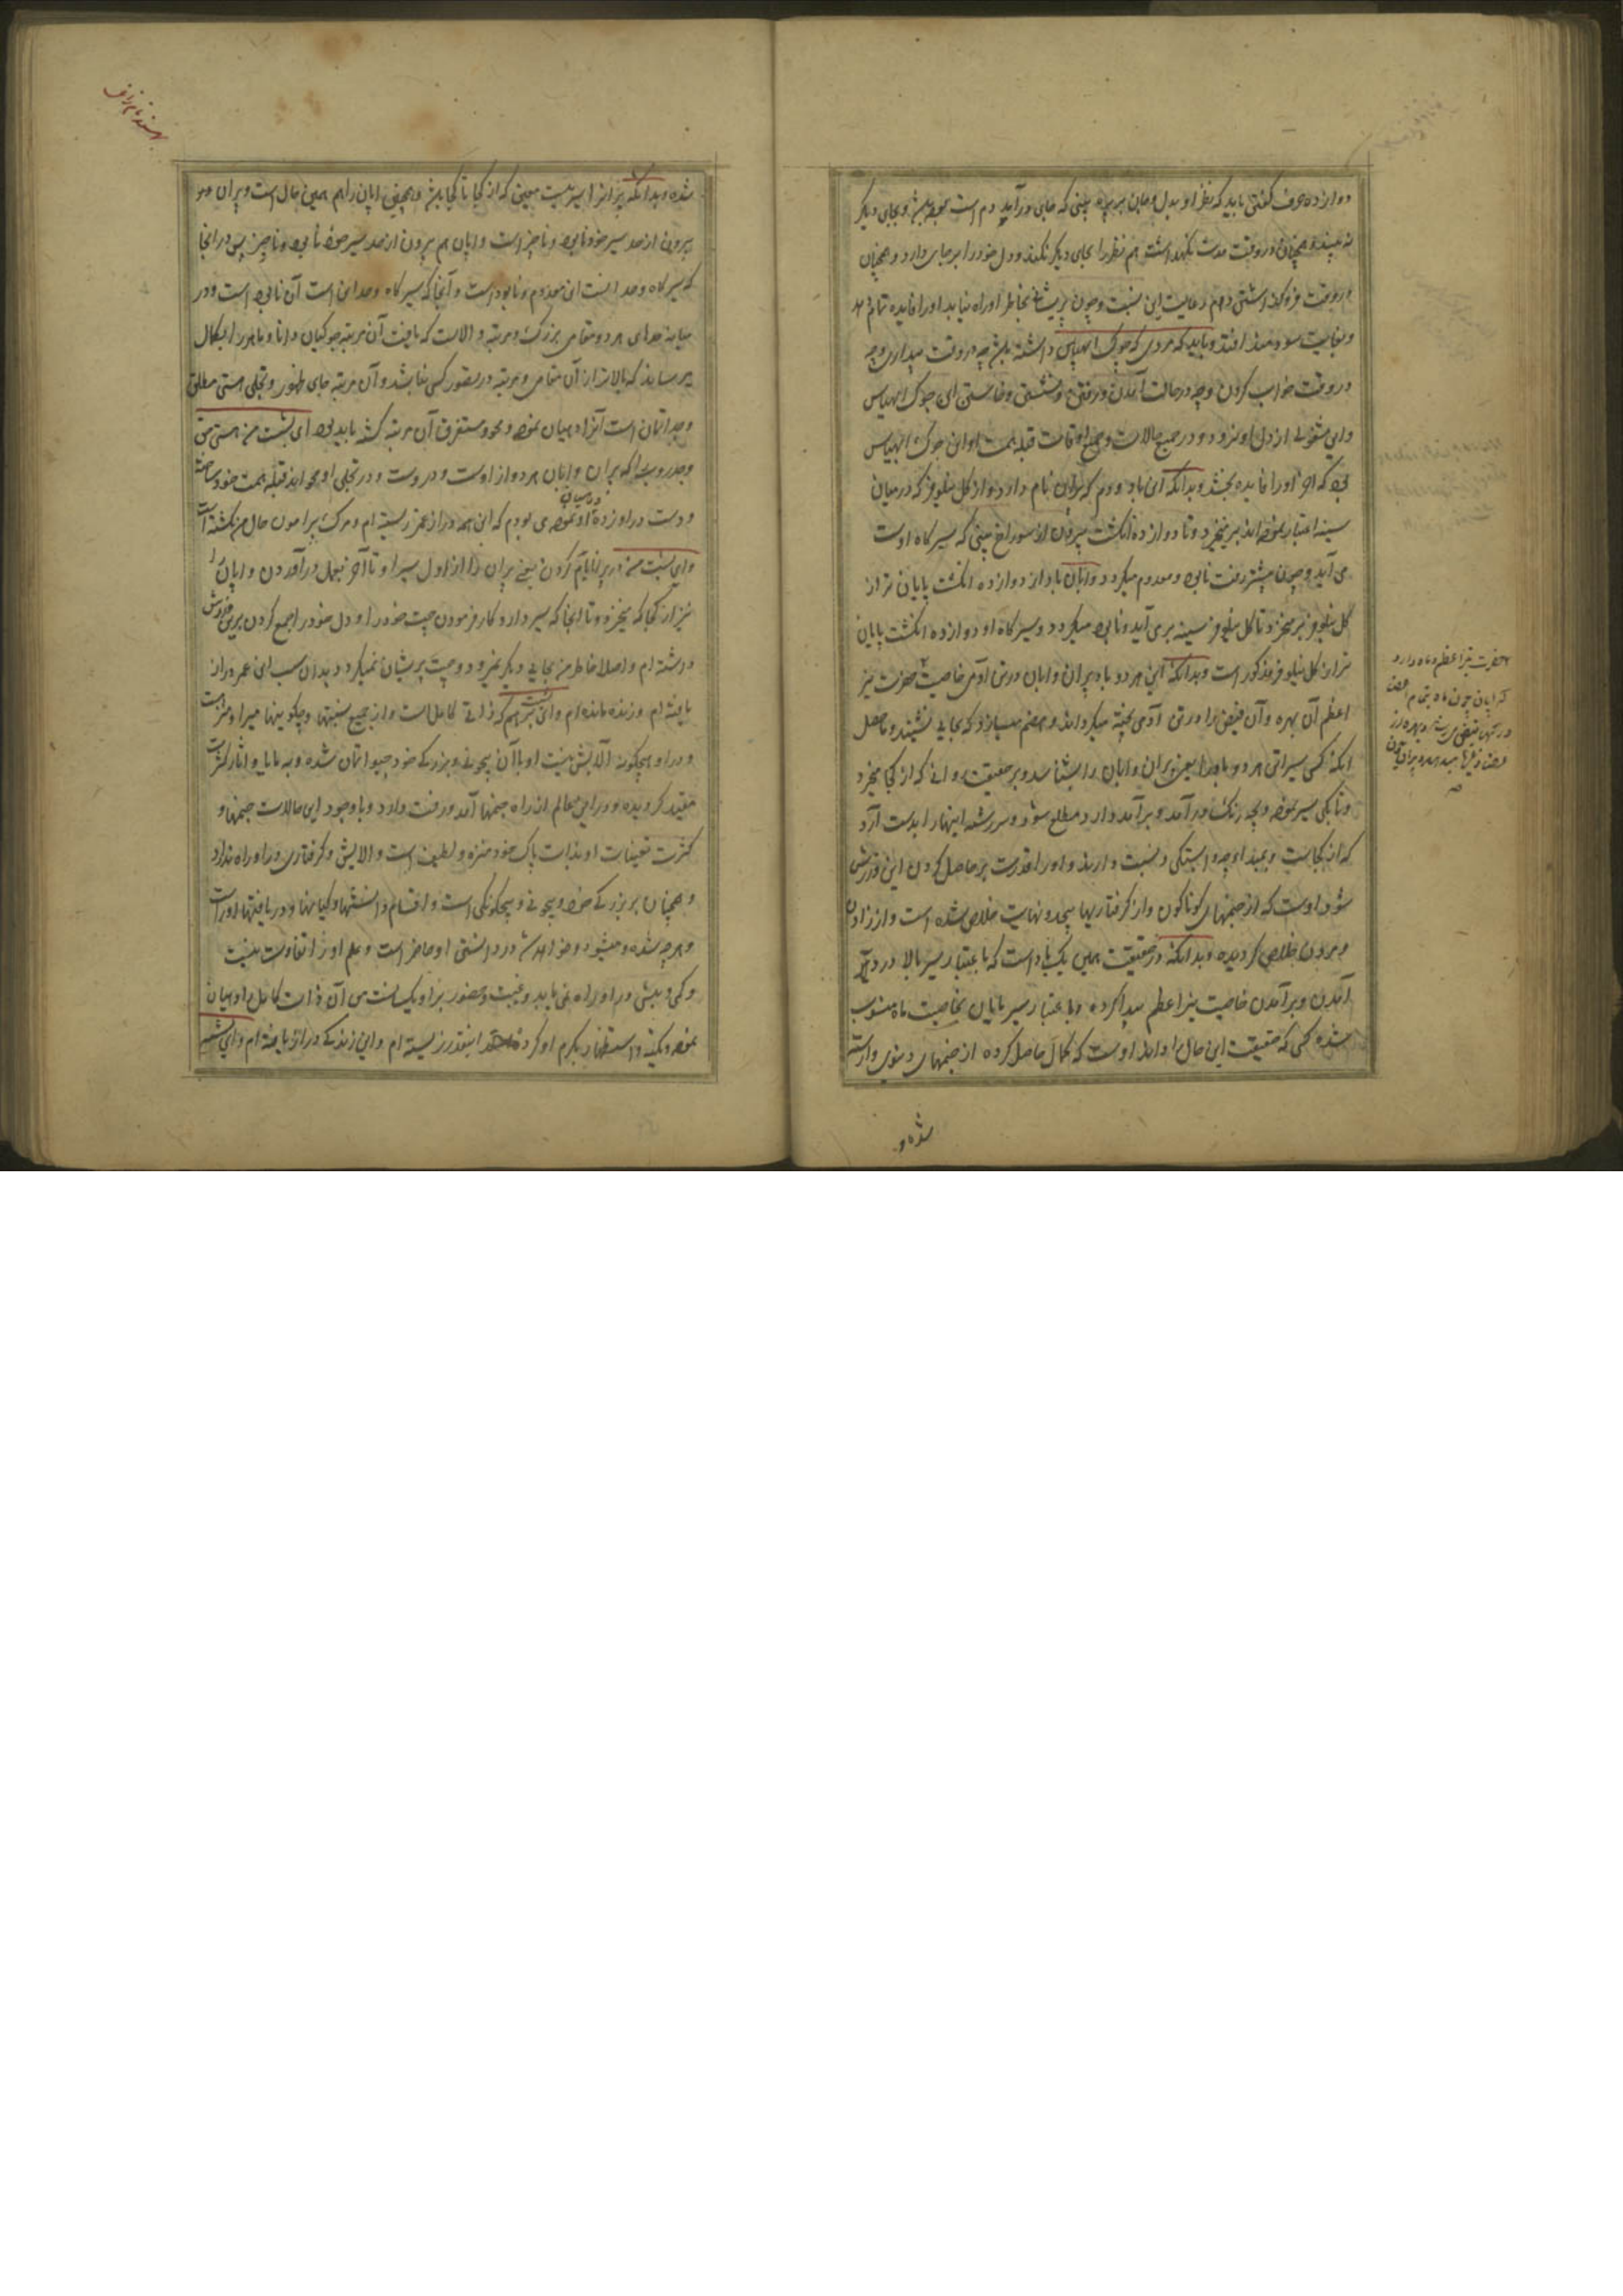 دوازده حرف گفتن باید که نظر او بدل و جان بر پره بینی که جای درآمد دم است بوده باشد و بجای دیگر
نه بیند و همچنان در وقت مدت نگهداشتن هم نظر را بجای دیگر نکند و دل خود را بر جای دارد و همچنان
در وقت فرو گذاشتن دم هم رعایت این نسبت و چون پریشانی بخاطر او راه نیابد او را فایده تمام دهد
و بغایت سودمند افتد و باید که مردی که جوک ابهیاس داشته باشد چه در وقت بیداری و چه
در وقت خواب کردن و چه در حالت آمدن و رفتن و نشستن و خاستن این جوک ابهیاس
و این مشغولی از دل او نرود و در جمیع حالات و جمیع اوقات قبله همت او این جوک ابهیاس
بود که او را فایده بخشد و بدانکه این باد و دم که پران نام دارد و از گل نیلوفر که در میان
سینه اعتبار نموده اند بر میخیزد و تا دوازده انگشت بیرون از سوراخ بینی که سیرگاه اوست
می آید و چون پیشتر رفت نابود و معدوم میگردد و اپان باد از دوازده انگشت پایان تر از
گل نیلوفر برمیخیزد و تا گل نیلوفر سینه برمی آید و نابود میگردد و سیرگاه او دوازده انگشت پایان
تر از گل نیلوفر مذکور است و بدانکه این هر دو باد پران و اپان در تن آدمی خاصیت حضرت نیر
اعظم آن بهره و آن فیض را در تن آدمی پخته میگرداند و هضم میسازد که بجایی نشیند و حاصل
آنکه کسی سیر این هر دو باد را یعنی پران و اپان را بشناسد و بر حقیقت روانی که از کجا میخیزد
و تا بکی سیر نموده و بچه رنگ درآمد و برآمد دارد مطلع شود و سررشته اینها را بدست آرد
که از کجاست و بمبداء چه وابستگی و نسبت دارند و او را قدرت بر حاصل کردن این ورزش
شود اوست که از جنمهای گوناگون و از گرفتاریها بیحد و نهایت خلاص شده است و از زادن
و مردن خلاص گردیده و بدانکه در حقیقت همین یک باد است که باعتبار سیر بالا در درآمد
آمدن و برآمدن خاصیت نیر اعظم پیدا کرده و باعتبار سیر پایان بخاصیت ماه منسوب
شده کسی که حقیقت این حال او داند اوست که کمال حاصل کرده از جنمهای دنیوی وارسته
شده و
حضرت نیر اعظم و ماه دارد
که اپان چون ماه تمام
شده و بدانکه پران را سیریست معین که از کجا تا کجا باشد و همچنین اپان را هم همین حال است و پران هم
بیرون از حد سیر خود نابود و ناچیز است و اپان هم بیرون از حد سیر خود نابود و ناچیز پس در آنجا
که سیرگاه و حد آنست این معدوم و نابود است و آنجا که سیرگاه و حد این است آن نابود است و در
میانه حدهای هر دو مقامی بزرگ و مرتبه والاست که یافت آن مرتبه جوگیان دانا و ماهر را بکمال
میرساند که بالاتر از آن مقامی و مرتبه در تصور کسی نباشد و آن مرتبه جای ظهور و تجلی هستی مطلق
وجد اتمان است آنرا دهیان نموده و محو و مستغرق آن مرتبه گشته باید بود ای بشست من هستی حق
و جدروپ را که پران و اپان هر دو از اوست و در اوست و در تجلی او محو اند قبله همت خود ساخته
و دست در او زده در میان او نموده می بودم که این همه دراز عمر زیسته ام و مرگ پیرامون حال من نگشته است
و ای بشست من در پرانایام کردن یعنی پران را از اول سیر او تا آخر بعمل درآوردن و اپان را
نیز از کجا که میخیزد و تا آنجا که سیر دارد کار فرمودن چت خود را و دل خود را جمع کردن برین روش
داشته ام و اصلا خاطر من بجایی دیگر نمیرود و چت پریشان نمیگردد بدان سبب این عمر دراز
یافته ام و زنده مانده ام و ای بشست برهم که ذاتی کامل است و از جمیع نسبتها و چگونیها مبرا و منزه است
و در او هیچگونه آلایش نیست او با آن بیچونی و بزرگی خود جیو اتمان شده و به مایا و آثار کثرت
مقید گردیده و در این عالم از راه جنمها آمد و رفت دارد و با وجود این حالات جنمها و
کثرت تعینات او بذات پاک خود منزه و لطیف است و آلایش و گرفتاری در او راه ندارد
و همچنان بر بزرگی خود و بیچونی و بیچگونگی است و اقسام دانستنها و گیانها و دریافتها او راست
و هر چه شده و میشود و خواهد شد در دانستن او حاضر است و علم او را تفاوت نیست
و کمی و بیشی در او راه نمی یابد و غیبت و حضور نزد او یکسانست من آن ذات کامل را دهیان
نموده و تکیه و استظهار بکرم او کرده اینقدر زیسته ام و این زندگی دراز یافته ام و ای بشست